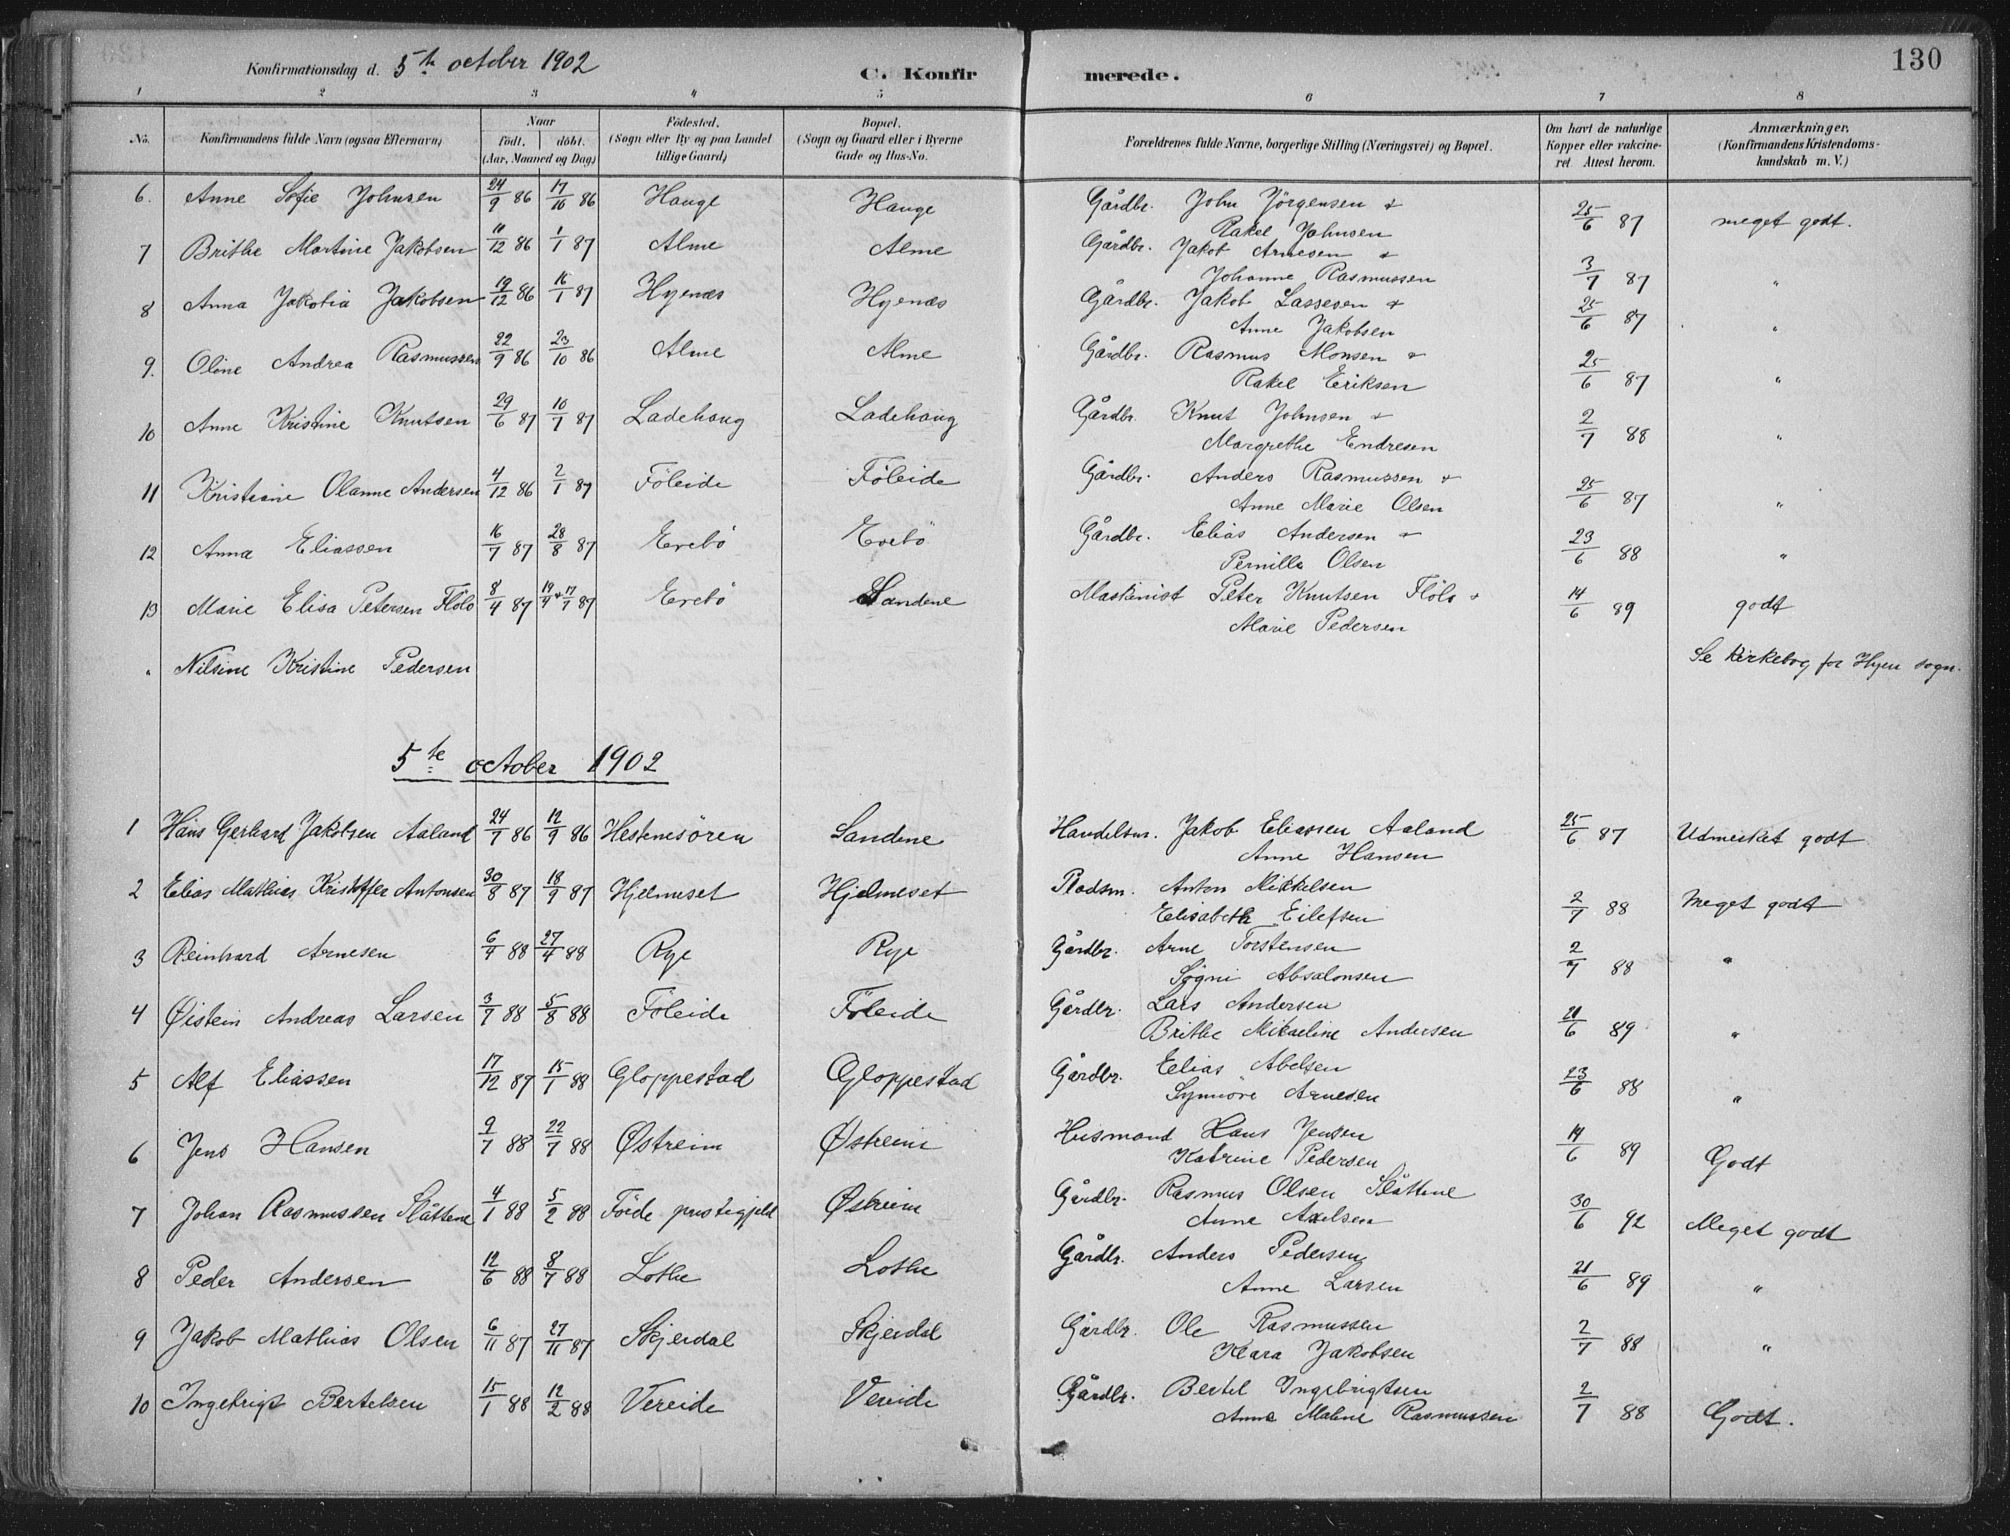 Konfirmationsdag d. 5te october 1902 C. Konfir merede. 130
1 2 3 4 5 6 7 8
No. Konfirmandens fulde Navn (ogsaa Efternavn) Naar født. døbt. (Aar, Maaned og Dag) Fødested. (Sogn eller By og paa Landet tillige Gaard) Bopæl. (Sogn og Gaard eller i Byerne Gade og Hus-No. Forældrenes fulde Navne, borgerlige Stilling (Næringsvei) og Bopæl. Om havt de naturlige Kopper eller vakcineret Attest herom. Anmærkninger. (Konfirmandens Kristendomskundskab m. V.)
6. Anne Sofie Johnsen 24/9 86 17/10 86 Hauge Hauge Gårdbr. John Jørgensen + 25/6 87 meget godt.
Rakel Johnsen
7 Brithe Martine Jakobsen 10/12 86 1/1 87 Alme Alme Gårdbr. Jakob Arnesen + 3/7 87 "
Johanne Rasmussen
8 Anna Jakobia Jakobsen 19/12 86 16/1 87 Hyenæs Hyenæs Gårdbr. Jakob Lassesen + 25/6 87 "
Anne Jakobsen
9. Oline Andrea Rasmussen 22/9 86 23/10 86 Alme Alme Gårdbr. Rasmus Monsen + 25/6 87 "
Rakel Eriksen
10 Anne Kristine Knutsen 29/6 87 10/7 87 Ladehaug Ladehaug Gårdbr. Knut Johnsen + 2/7 88 "
Margrethe Endresen
11 Kristiane Olanne Andersen 4/12 86 2/1 87 Föleide Föleide Gårdbr. Anders Rasmussen + 25/6 87 "
Anne Marie Olsen
12 Anna Eliassen 16/7 87 28/8 87 Evebö Evebö Gårdbr. Elias Andersen + 23/6 88 "
Pernille Olsen
13 Marie Elisa Petersen Flölo 8/4 87 19/4 + 17/7 87 Evebö Sandene Maskinist Peter Knutsen Flölo + 14/6 89 godt
Marie Pedersen
" Nilsine Kristine Pedersen Se kirkebog for Hyen sogn.
5te october 1902
1 Hans Gerhard Jakobsen Aaland 24/7 86 12/9 86 Hestenesören Sandene Handelsm. Jakob Eliassen Aaland 25/6 87 Udmerket godt
Anne Hansen
2 Elias Mathias Kristoffer Antonsen 30/8 87 18/9 87 Hjelmeset Hjelmeset Pladsm. Anton Mikkelsen 2/7 88 Meget godt
Elisabeth Eilefsen
3 Reinhard Arnesen 6/4 88 27/4 88 Rye Rye Gårdbr. Arne Torstensen 2/7 88 "
Søgni Absalonsen
4 Øistein Andreas Larsen 3/7 88 5/8 88 Föleide Föleide Gårdbr. Lars Andersen 21/6 89 "
Brithe Mikaeline Andersen
5 Alf Eliassen 17/12 87 15/1 88 Gloppestad Gloppestad Gårdbr. Elias Abelsen 23/6 88 "
Synnöve Arnesen
6 Jens Hansen 9/7 88 22/7 88 Østreim Østreim Husmand Hans Jensen 14/6 89 Godt
Katrine Pedersen
7 Johan Rasmussen Slåttene 4/1 88 5/2 88 Förde prestegjeld Østreim Gårdbr. Rasmus Olsen Slåttene 30/6 92 Meget godt
Anne Axelsen
8 Peder Andersen 12/6 88 8/7 88 Lothe Lothe Gårdbr. Anders Pedersen 21/6 89 "
Anne Larsen
9 Jakob Mathias Olsen 6/11 87 27/11 87 Skjerdal Skjerdal Gårdbr. Ole Rasmussen 2/7 88 "
Klara Jakobsen
10 Ingebrigt Bertelsen 15/1 88 12/2 88 Vereide Vereide Gårdbr. Bertel Ingebrigtsen 2/7 88 Godt.
Anne Maline Rasmussen